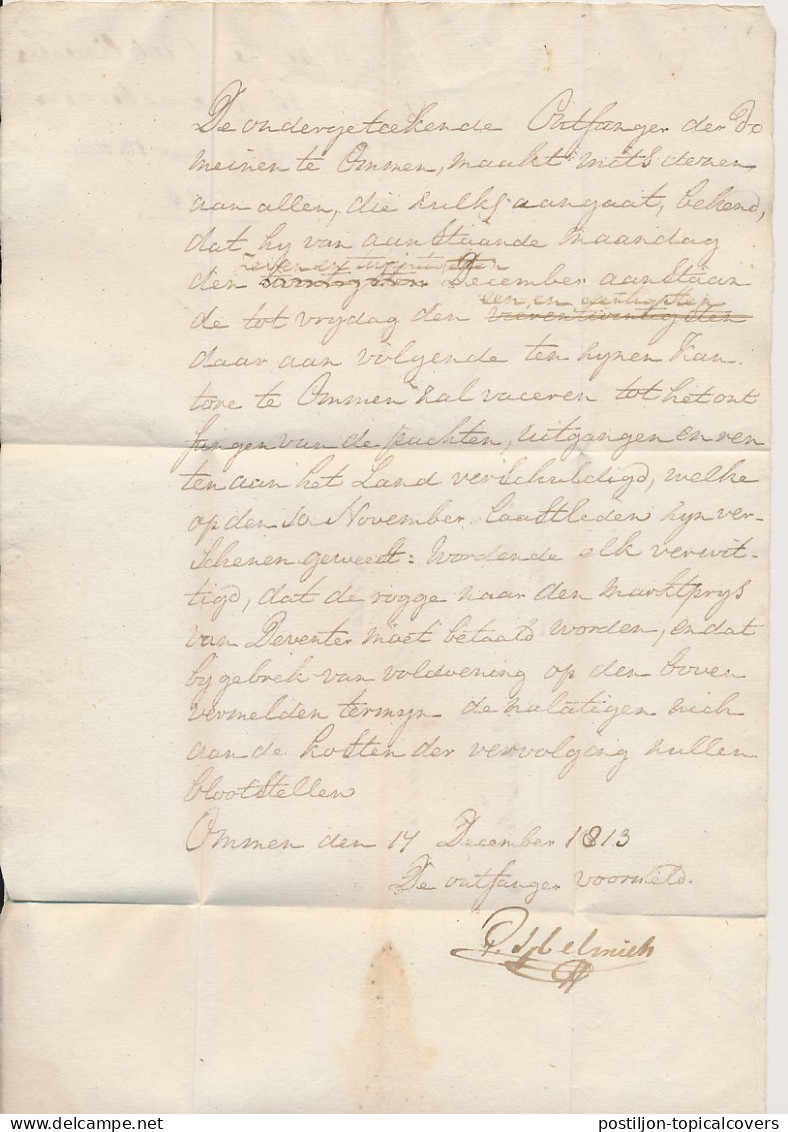 De ondergeteekende Ontfanger der Do
meinen te Ommen, maakt mits dezen
aan allen, die zulks aangaat, bekend,
dat hy van aanstaande maandag
zeven en twintigsten
den twintigsten December aanstaan
een en dertigsten
de tot vrydag den vierentwintigsten
daar aan volgende ten zynen Kan
tore te Ommen zal vaceren tot het ont
fangen van de pachten, uitgangen en ren
ten aan het Land verschuldigd, welke
op den 10 November laastleden zyn ver-
schenen geweest: Wordende elk verwit-
tigd, dat de rogge naar den marktprys
van Deventer moet betaald worden, en dat
by gebrek van voldoening op den boven
vermelden termyn de nalatigen zich
aan de kosten der vervolging zullen
blootstellen
Ommen den 14 December 1813
De ontfanger voormeld.
postiljon-topicalcovers.com